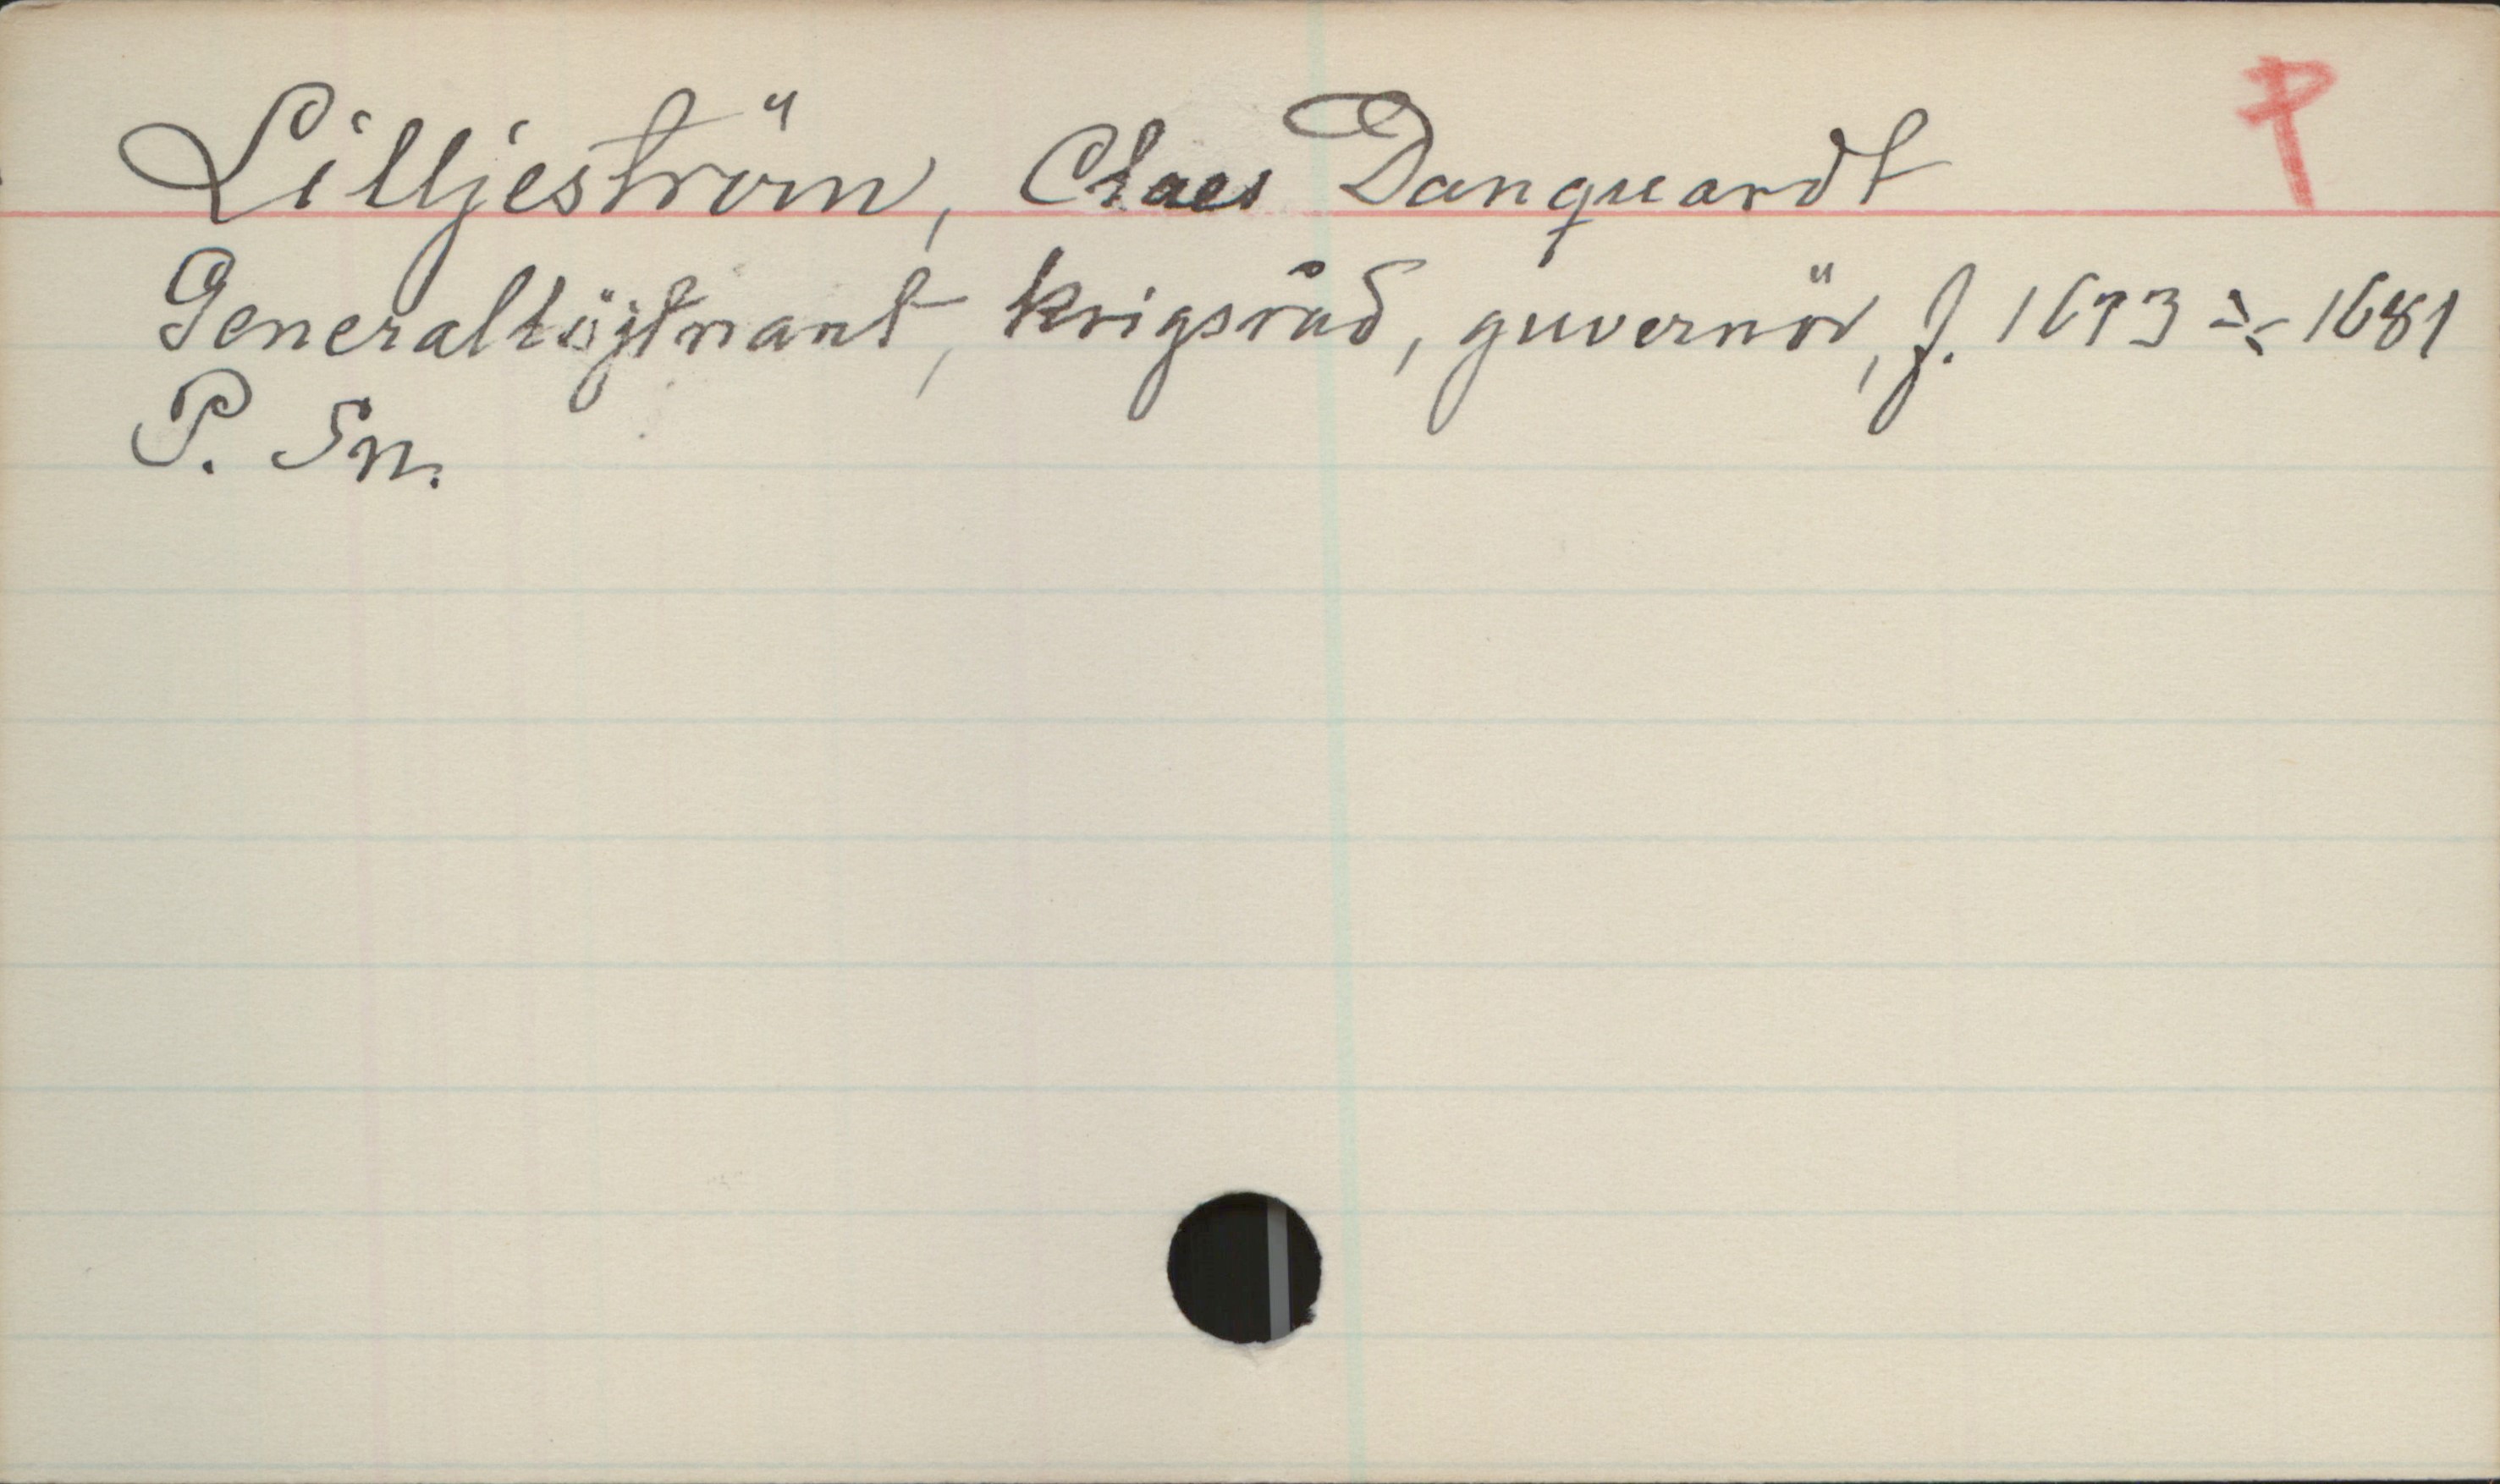 Lilljeström, Claes Danquardt P
Generallöjtnant, krigsråd, guvernör, f. 1613 ⁒ 1681
P. Sn.